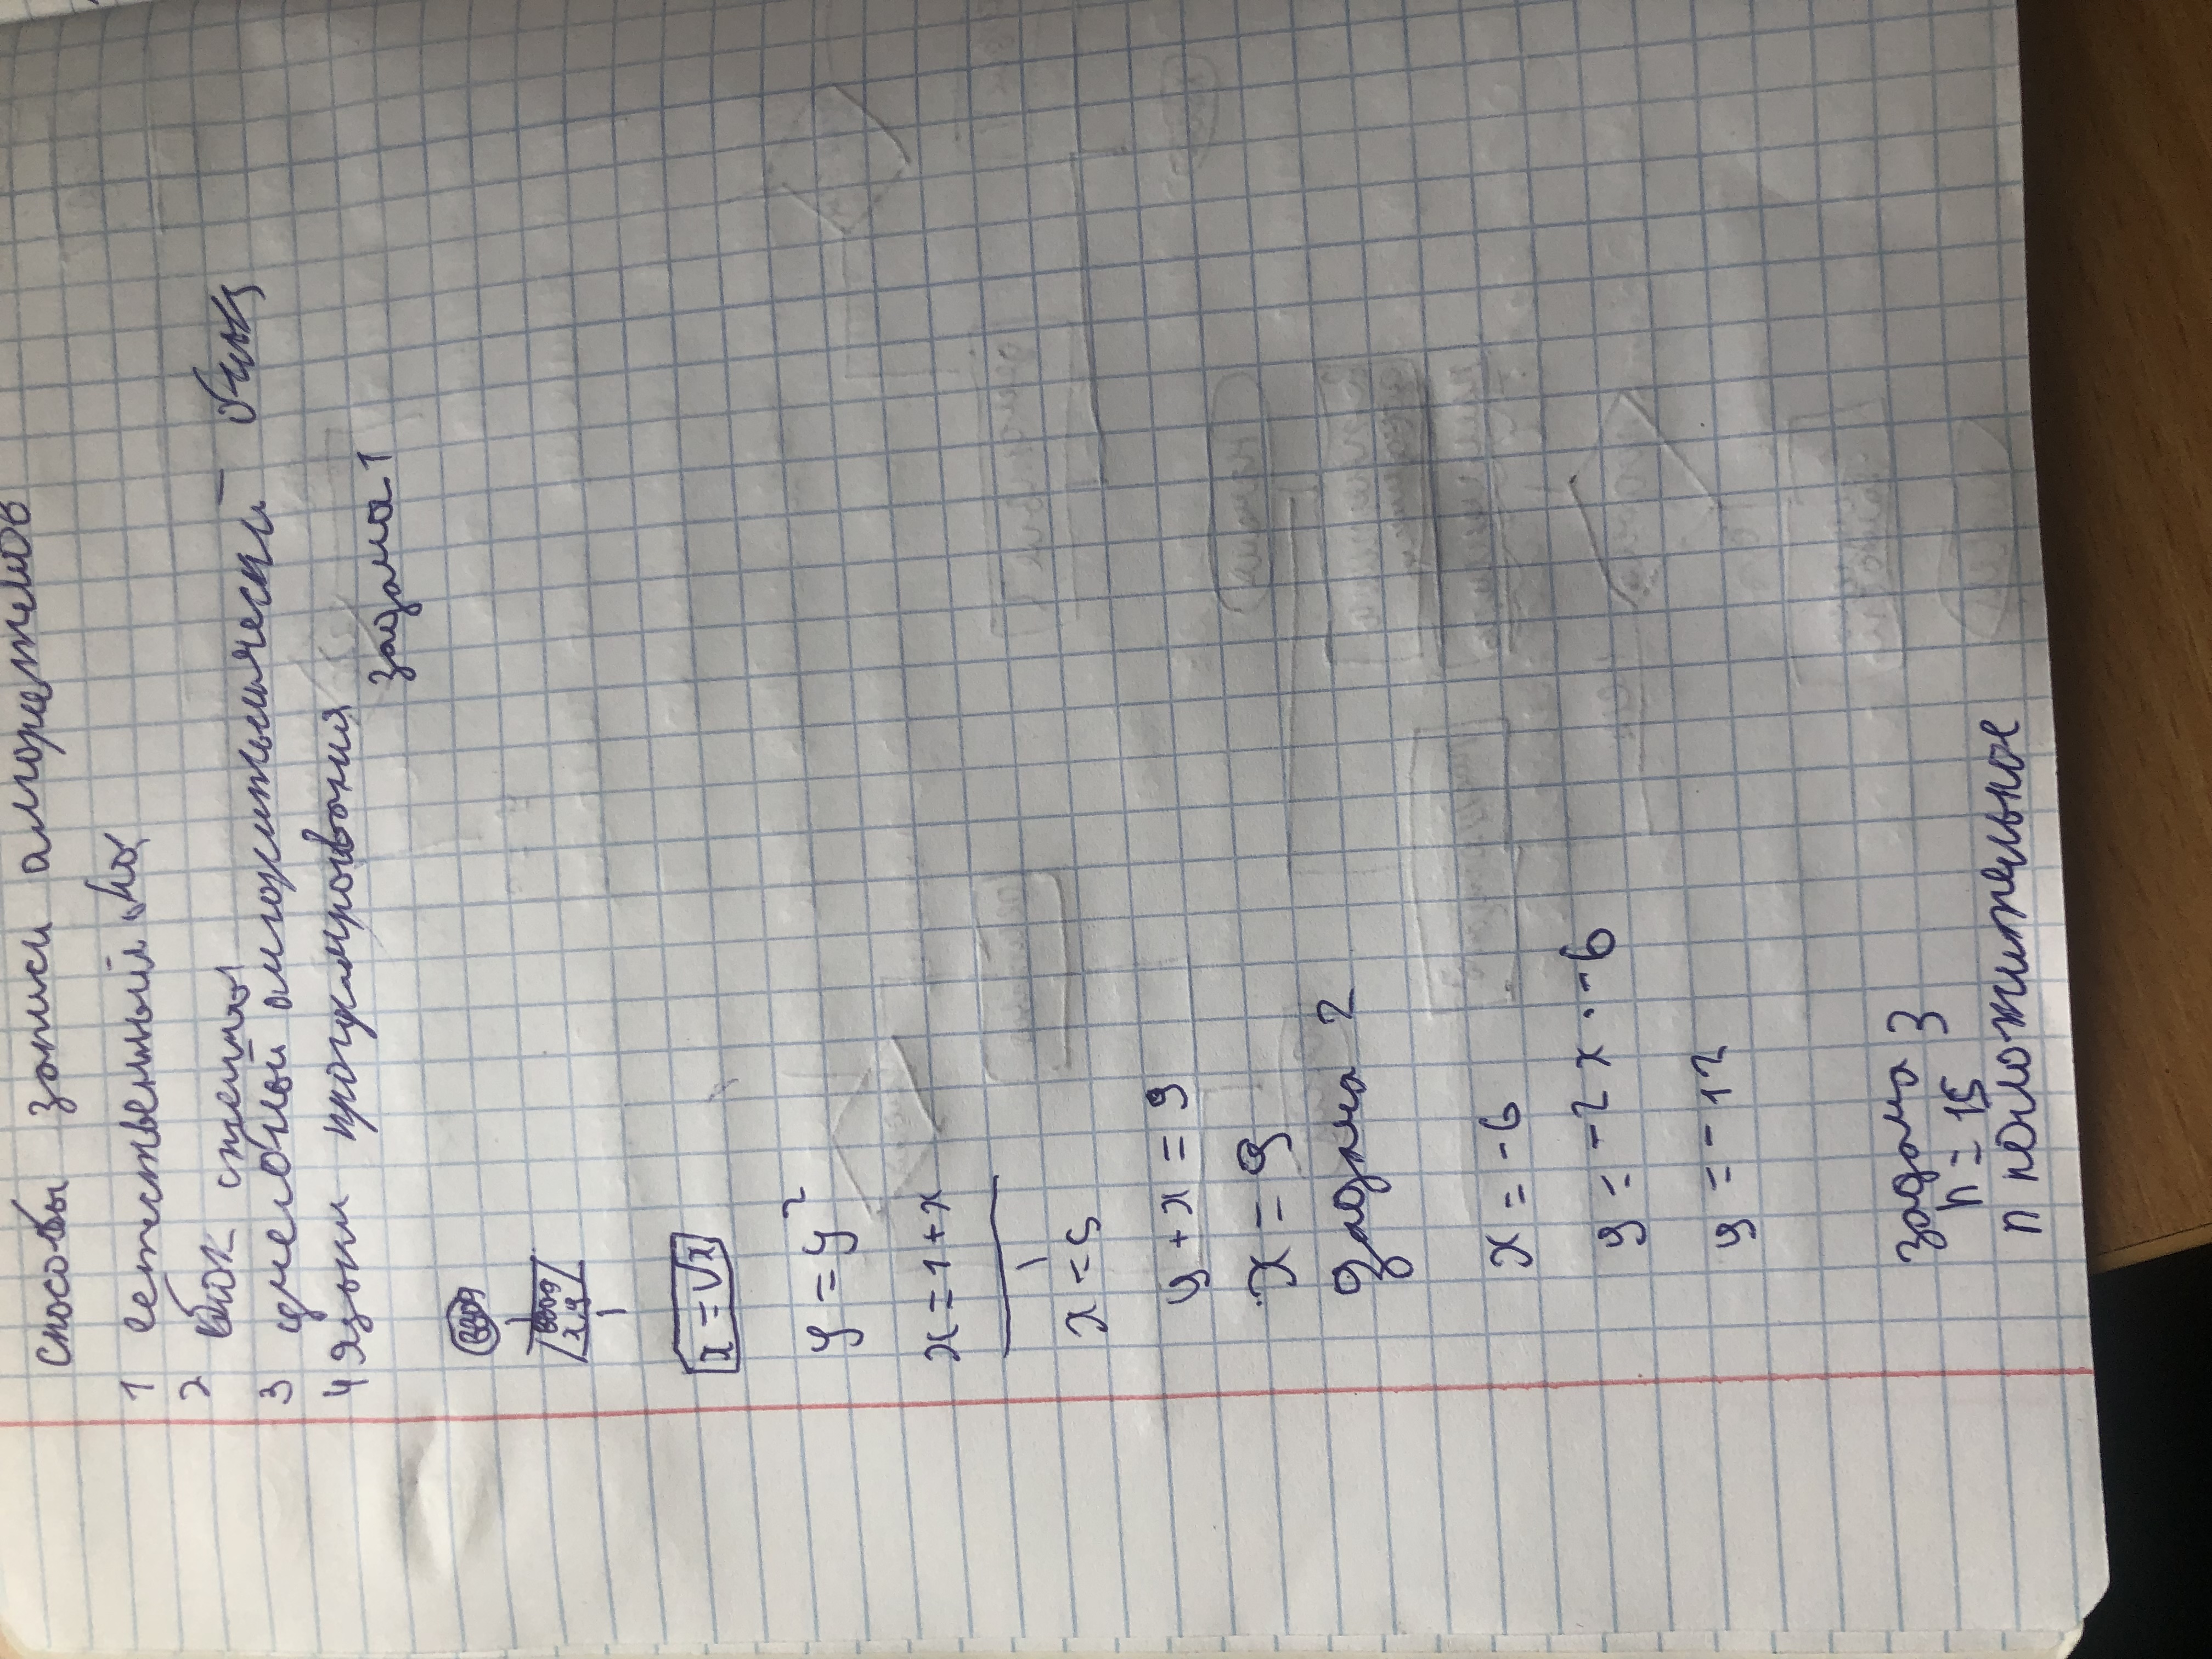 способы записи алгоритмов
1 естественный
2 блок схемы
3 учебный алгоритмический
4 языки програмирования
задача 1
ввод
ввод
x, y
x = √x
y = y²
x = 1 + x
x = 5
y + x = 9
x = 9
задача 2
x = -6
y = -2 x · -6
y = -12
задача 3
n = 15
n положительное